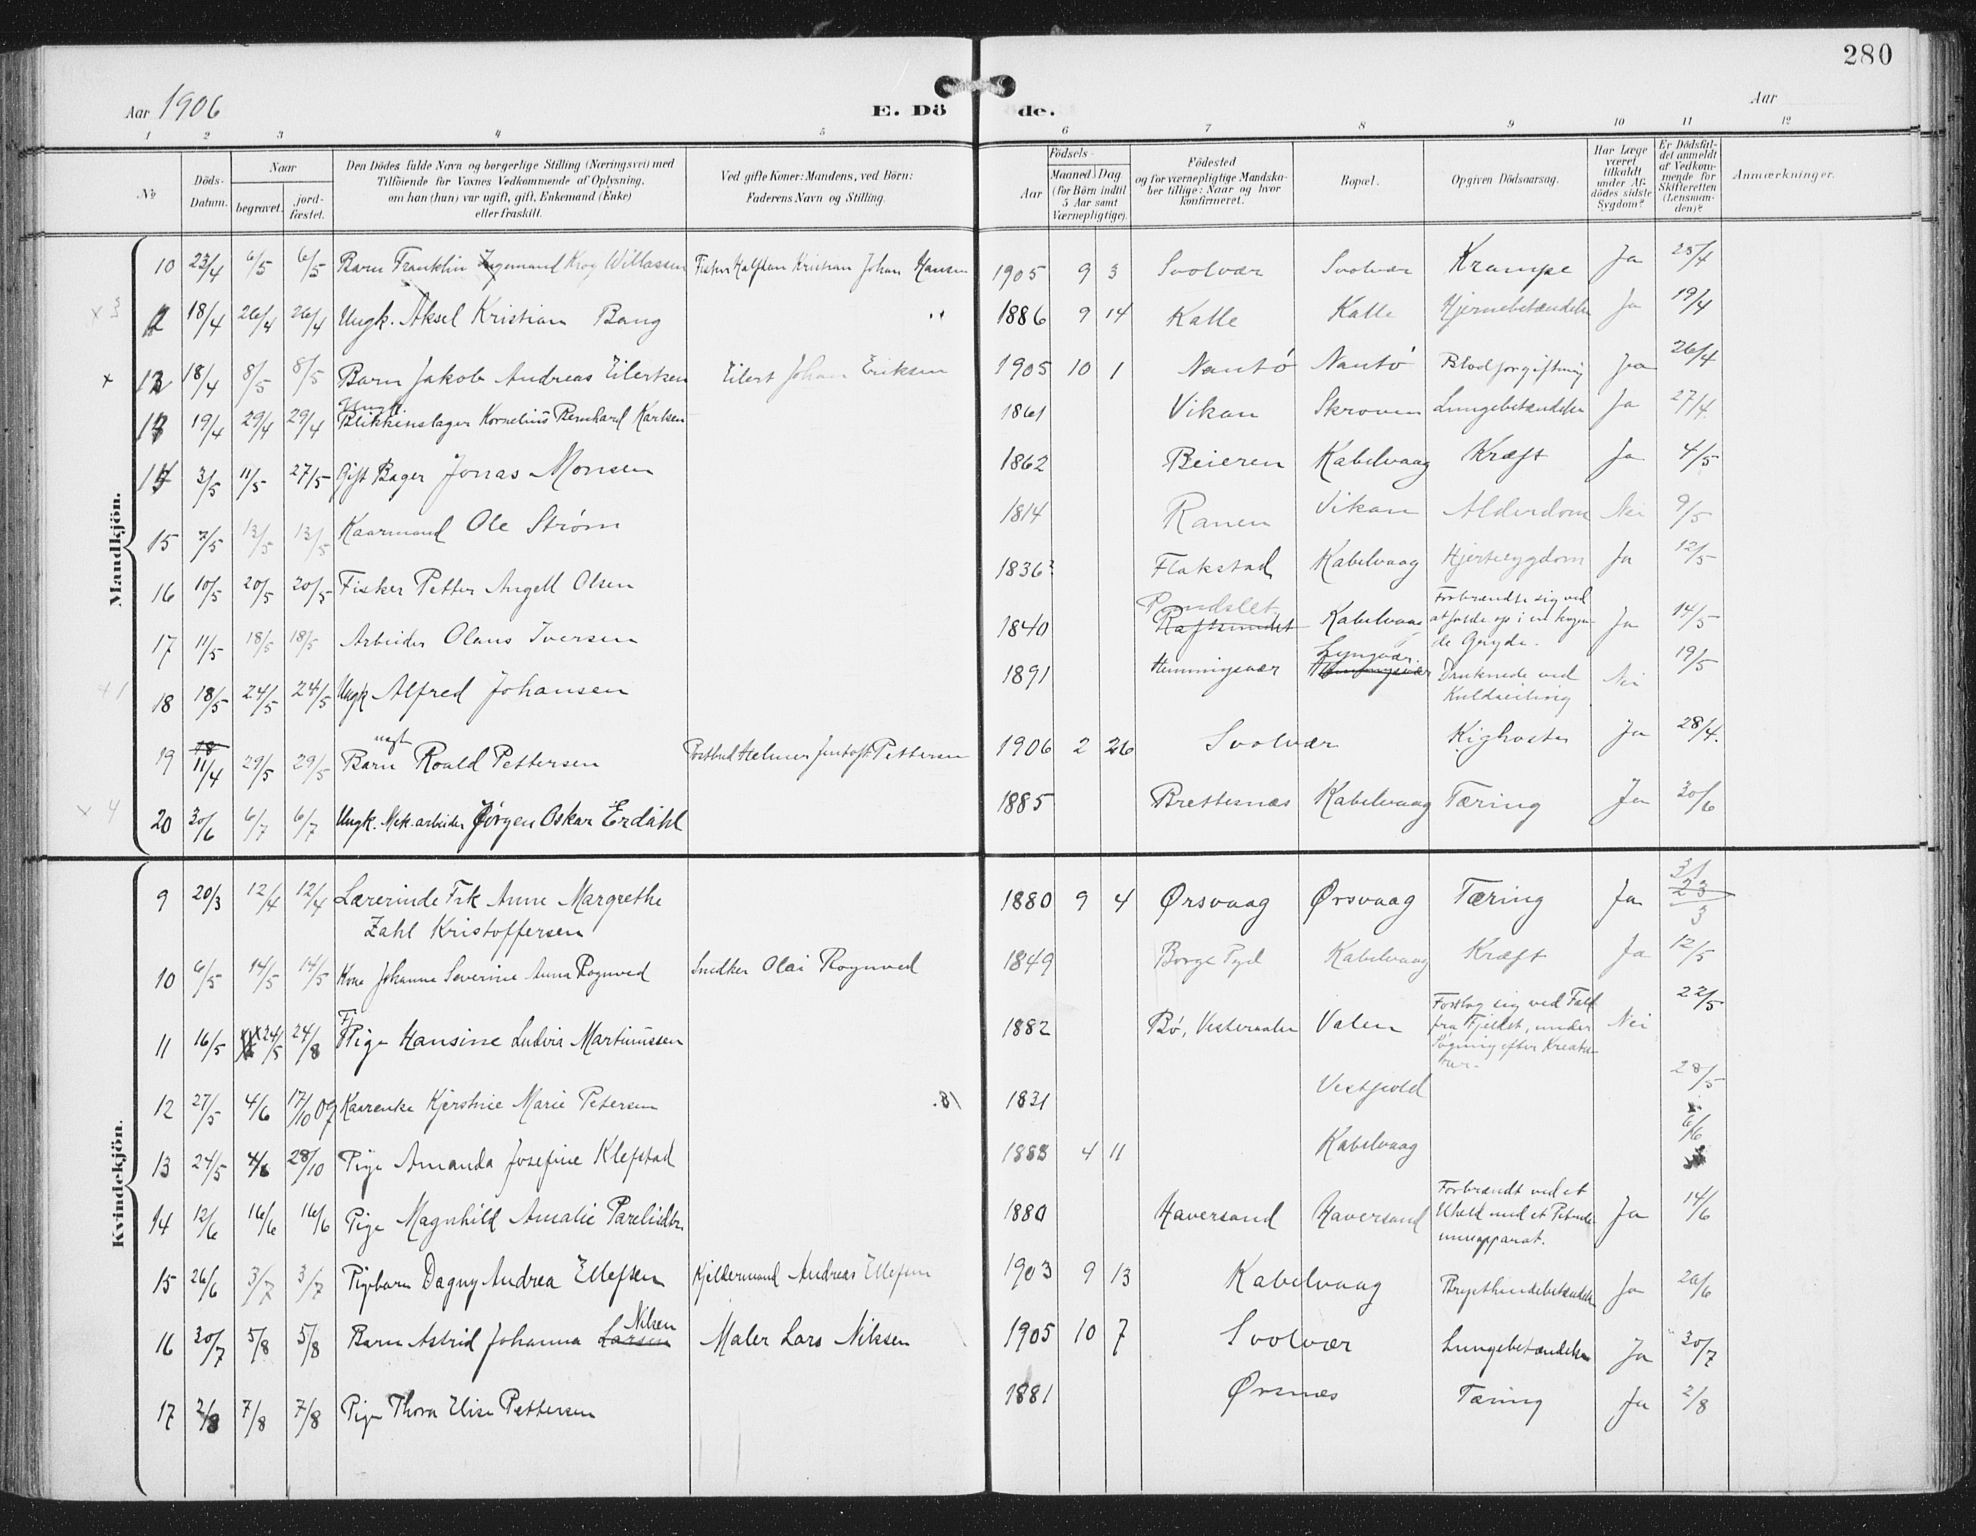 280
Aar 1906
E. Dö de.
Aar
1 2 3 4 5 6 7 8 9 10 11 12
No
Döds-Datum.
Naar
begravet.
jord-fæstet.
Den Dödes fulde Navn og borgerlige Stilling (Næringsvei) med
Tilföiende for Voxnes Vedkommende af Oplysning,
om han (hun) var ugift, gift, Enkemand (Enke)
eller fraskilt.
Ved gifte Koner: Mandens, ved Börn:
Faderens Navn og Stilling.
Födsels-
Aar
Maaned. Dag
(for Börn indtil
5 Aar samt
Værnepligtige).
Födested
og for værnepligtige Mandska-
ber tillige: Naar og hvor
konfirmeret.
Bopæl.
Opgiven Dödsaarsag.
Har Læge
været
tilkaldt
under Af-
dödes sidste
Sygdom?
Er Dödsfal-
det anmeldt
af Vedkom-
mende for
Skifteretten
(Lensman-
den)?
Anmærkninger.
Mandkjön.
10 23/4 6/5 6/5 Barn Franklin Ingemand Krog Willassen Fisker Halfdan Kristian Johan Hansen 1905 9 3 Svolvær Svolvær Krampe Ja 25/4
x 3 12 18/4 26/4 26/4 Ungk. Aksel Kristian Bang " 1886 9 14 Kalle Kalle Hjernebetændelse Ja 19/4
x 12 18/4 8/5 8/5 Barn Jakob Andreas Eilertsen Eilert Johan Eriksen 1905 10 1 Nantö Nantö Blodforgiftning Ja 26/4
Ungk.
13 19/4 29/4 29/4 Blikkenslager Kornelius Bernhard Karlsen 1861 Vikan Skroven Lungebetændelse Ja 27/4
14 3/5 11/5 27/5 Gift Bager Jonas Monsen 1862 Beieren Kabelvaag Kræft Ja 4/5
15 7/5 13/5 13/5 Kaarmand Ole Strøm 1814 Ranen Vikan Alderdom Nei 9/5
16 10/5 20/5 20/5 Fisker Petter Angell Olsen 1836? Flakstad Kabelvaag Hjertesygdom Ja 12/5
17 11/5 18/5 18/5 Arbeider Olaus Iversen 1840 Raftsundet Kabelvaag Forbrændte sig ved
at falde op i en kogen-
de Gryde. Ja 14/5
18 18/5 24/5 24/5 Ungk Alfred Johansen 1891 Henningsvær Lyngvær Henningsvær Druknede ved
Kuldseiling Nei 19/5
19 18 11/4 29/5 29/5 Barn Roald Pettersen Postbud Helmer Gustaf Pettersen 1906 2 26 Svolvær Kighoste Ja 28/4.
x 4 20 30/6 6/7 6/7 Ungk. Mek. arbeider Jörgen Oskar Erdahl 1885 Brettesnæs Kabelvaag Tæring Ja 30/6
Kvindekjön.
9 20/3 12/4 12/4 Lærerinde Frk Anne Margrethe
Zahl Kristoffersen 1880 9 4 Ørsvaag Ørsvaag Tæring Ja 31 23/3
10 6/5 14/5 14/5 Kone Johanne Severine Anna Rognved Snedker Olai Rognved 1849 Borge Kabelvaag Kræft Ja 12/5
11 16/5 24/5 24/8 Pige Hansine Ludvia Martinussen 1882 Bø, Vesteraalen Valen Forslog sig ved Fald
fra Fjeldet, under
Søgning efter Kreatu-
rer. Nei 22/5
12 27/5 4/6 17/10 07 Kaarenke Kjerstine Marie Petersen 1831 Vestfjold 28/5
13 24/5 4/6 28/10 Pige Amanda Josefine Klefstad 1883 4 11 Kabelvaag 6/6
14 12/6 16/6 16/6 Pige Magnhild Amalie Pareliusen 1880 Haversand Haversand Forbrændt ved et
Uheld med et Petrole-
umsapparat. Ja 14/6
15 26/6 3/7 3/7 Pigebarn Dagny Andrea Ellefsen Kjeldermand Andreas Ellefsen 1903 9 13 Kabelvaag Brysthindebetændelse Ja 26/6
16 30/7 5/8 5/8 Barn Astrid Johanna Larsen Nilsen Maler Lars Nilsen 1905 10 7 Svolvær Lungebetændelse Ja 30/7
17 2/8 7/8 7/8 Pige Thora Elise Pettersen 1881 Ørsnes Tæring Ja 2/8